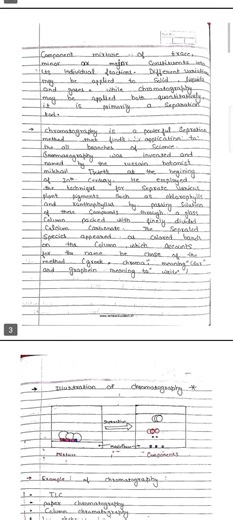 Component mixture of trace,
minor or major constituents into
its individual fractions. Different variation
may be applied to Solid, liquids
and gases. while chromatography
may be applied both quantitatively
it is primarily a separation
tool.
→ chromatography is a powerful sepration
method that finds applications to
the all branches of Science.
was invented and
named by the russain botanist
mikhail at the begining
of 20th Century. He employed
the technique for Seprate various
plant pigments Such as chlorophylls
and xanthophylls by passing Solution
of these Compounds through a glass
Column packed with finely divided
Calcium Carbonate. The Seprated
Species appeared as colored bands
on the Column, which accounts
for the name he chose of the
method (greek, chroma, meaning "color"
and graphein meaning to "write")
3
→ Illustration of chromatography
Sepration
Mixture Components
→ Example of chromatography:
TLC
paper chromatography
Column chromatography